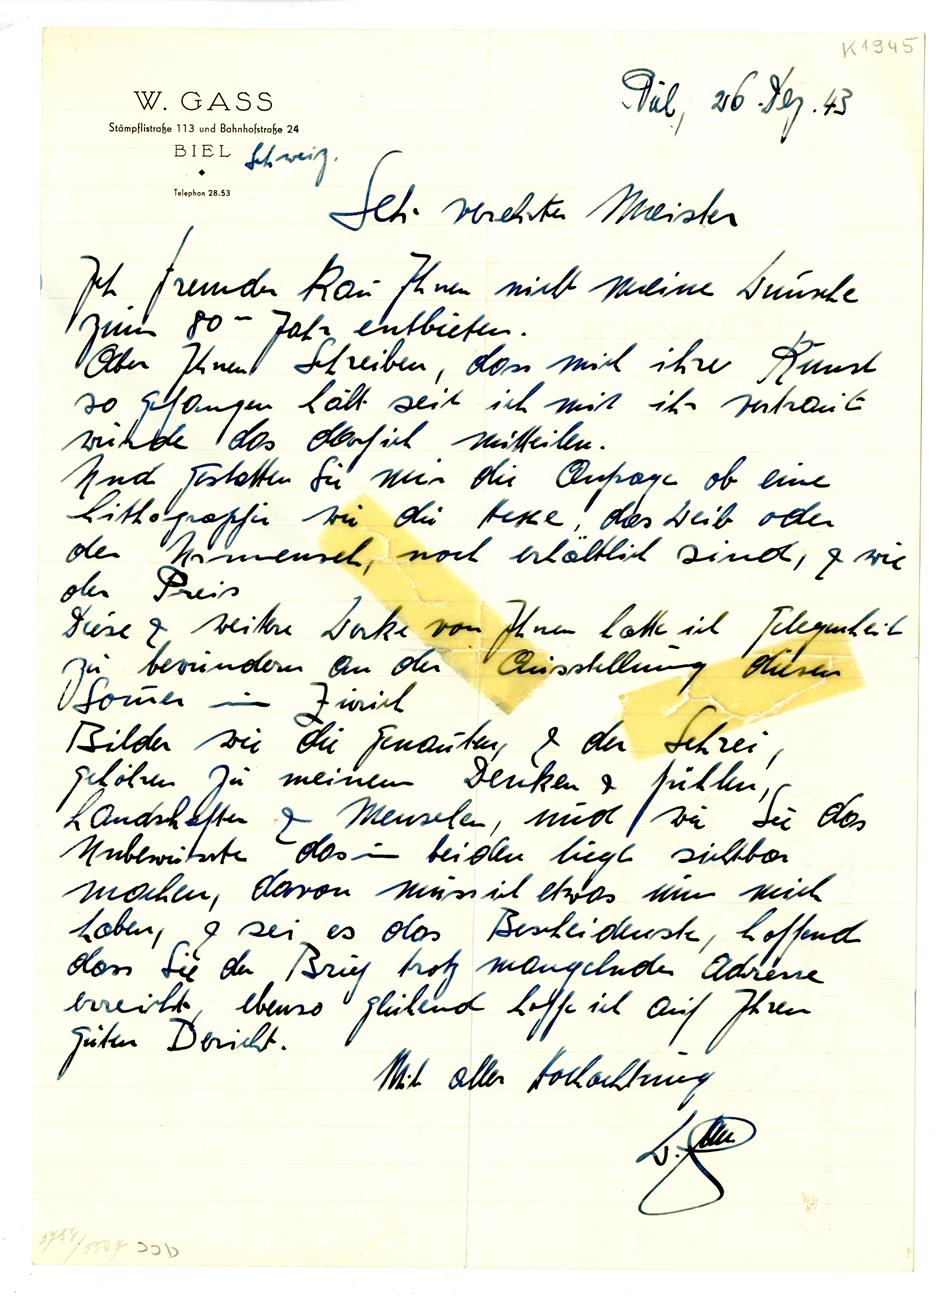 K1945
W. GASS
Stämpflistraße 113 und Bahnhofstraße 24
BIEL Schweiz.
Telephon 28.53
Biel, 26. Dez. 43
Sehr verehrter Meister
Ich fremder kan Ihnen nicht meine Wünsche
zum 80- Jahr entbieten.
Aber Ihnen Schreiben, dass mich ihrer Kunst
so gefangen hält seit ich mit ihr vertraut
wurde das darf ich mitteilen.
Und gestatten Sie mir die Anfrage ob eine
Lithographie wie die Hexe, das Weib oder
der Urmensch, noch erhältlich sind, & wie
der Preis
Diese & weitere Werke von Ihnen hatte ich Gelegenheit
zu bewundern an der Ausstellung diesen
Somer in Zürich
Bilder wie die genauten, & der Schrei,
gehören zu meinem Denken & fühlen,
Landschaften & Menschen, und wie Sie das
Unbewusste das in beiden liegt sichtbar
machen, davon muss ich etwas um mich
haben, & sei es das Bescheidenste, hoffend
dass Sie der Brief trotz mangelnder Adresse
erreicht, ebenso glühend hoffe ich auf Ihren
guten Bericht.
Mit aller Hochachtung
W. Gass